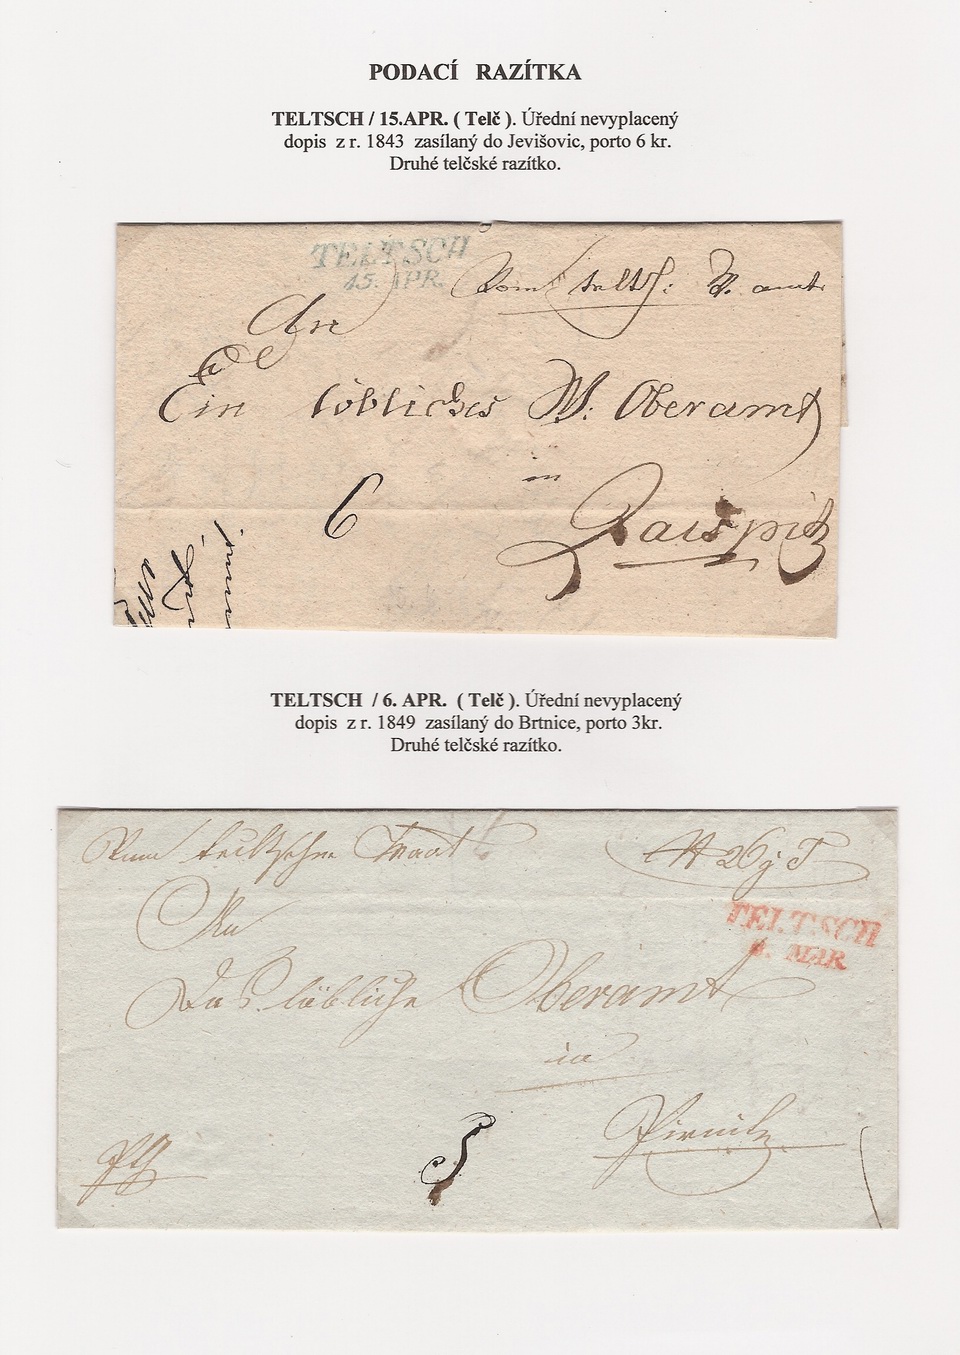 PODACÍ RAZÍTKA
TELTSCH / 15.APR. ( Telč ). Úřední nevyplacený
dopis z r. 1843 zasílaný do Jevišovic, porto 6 kr.
Druhé telčské razítko.
TELTSCH
15. APR.
An
Ein löbliches W: Oberamt
in
6
TELTSCH / 6. APR. ( Telč ). Úřední nevyplacený
dopis z r. 1849 zasílaný do Brtnice, porto 3kr.
Druhé telčské razítko.
TELTSCH
6. MAR
An
Das löbliche Oberamt
in
Pirnitz